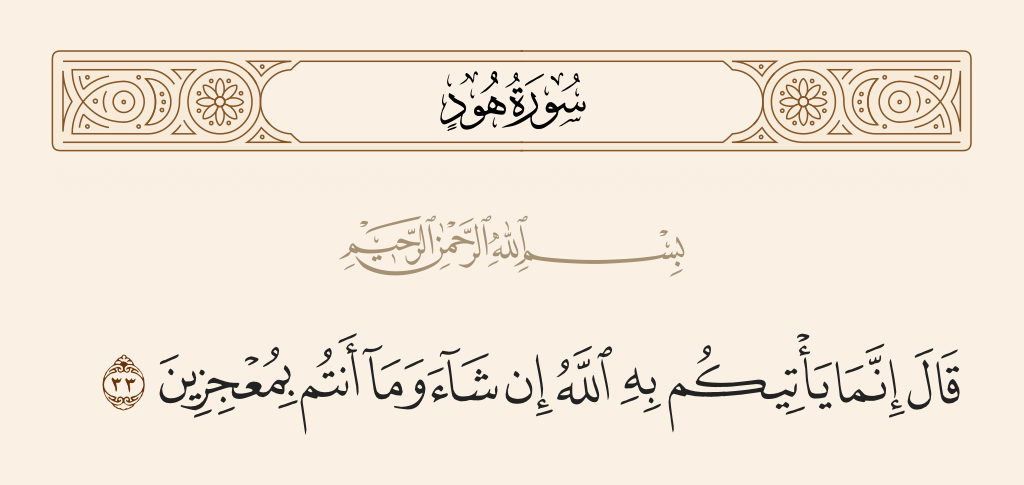 سُورَةُ هُودٍ
بِسْمِ ٱللَّهِ ٱلرَّحْمَٰنِ ٱلرَّحِيمِ
قَالَ إِنَّمَا يَأْتِيكُم بِهِ ٱللَّهُ إِن شَآءَ وَمَآ أَنتُم بِمُعْجِزِينَ ٣٣